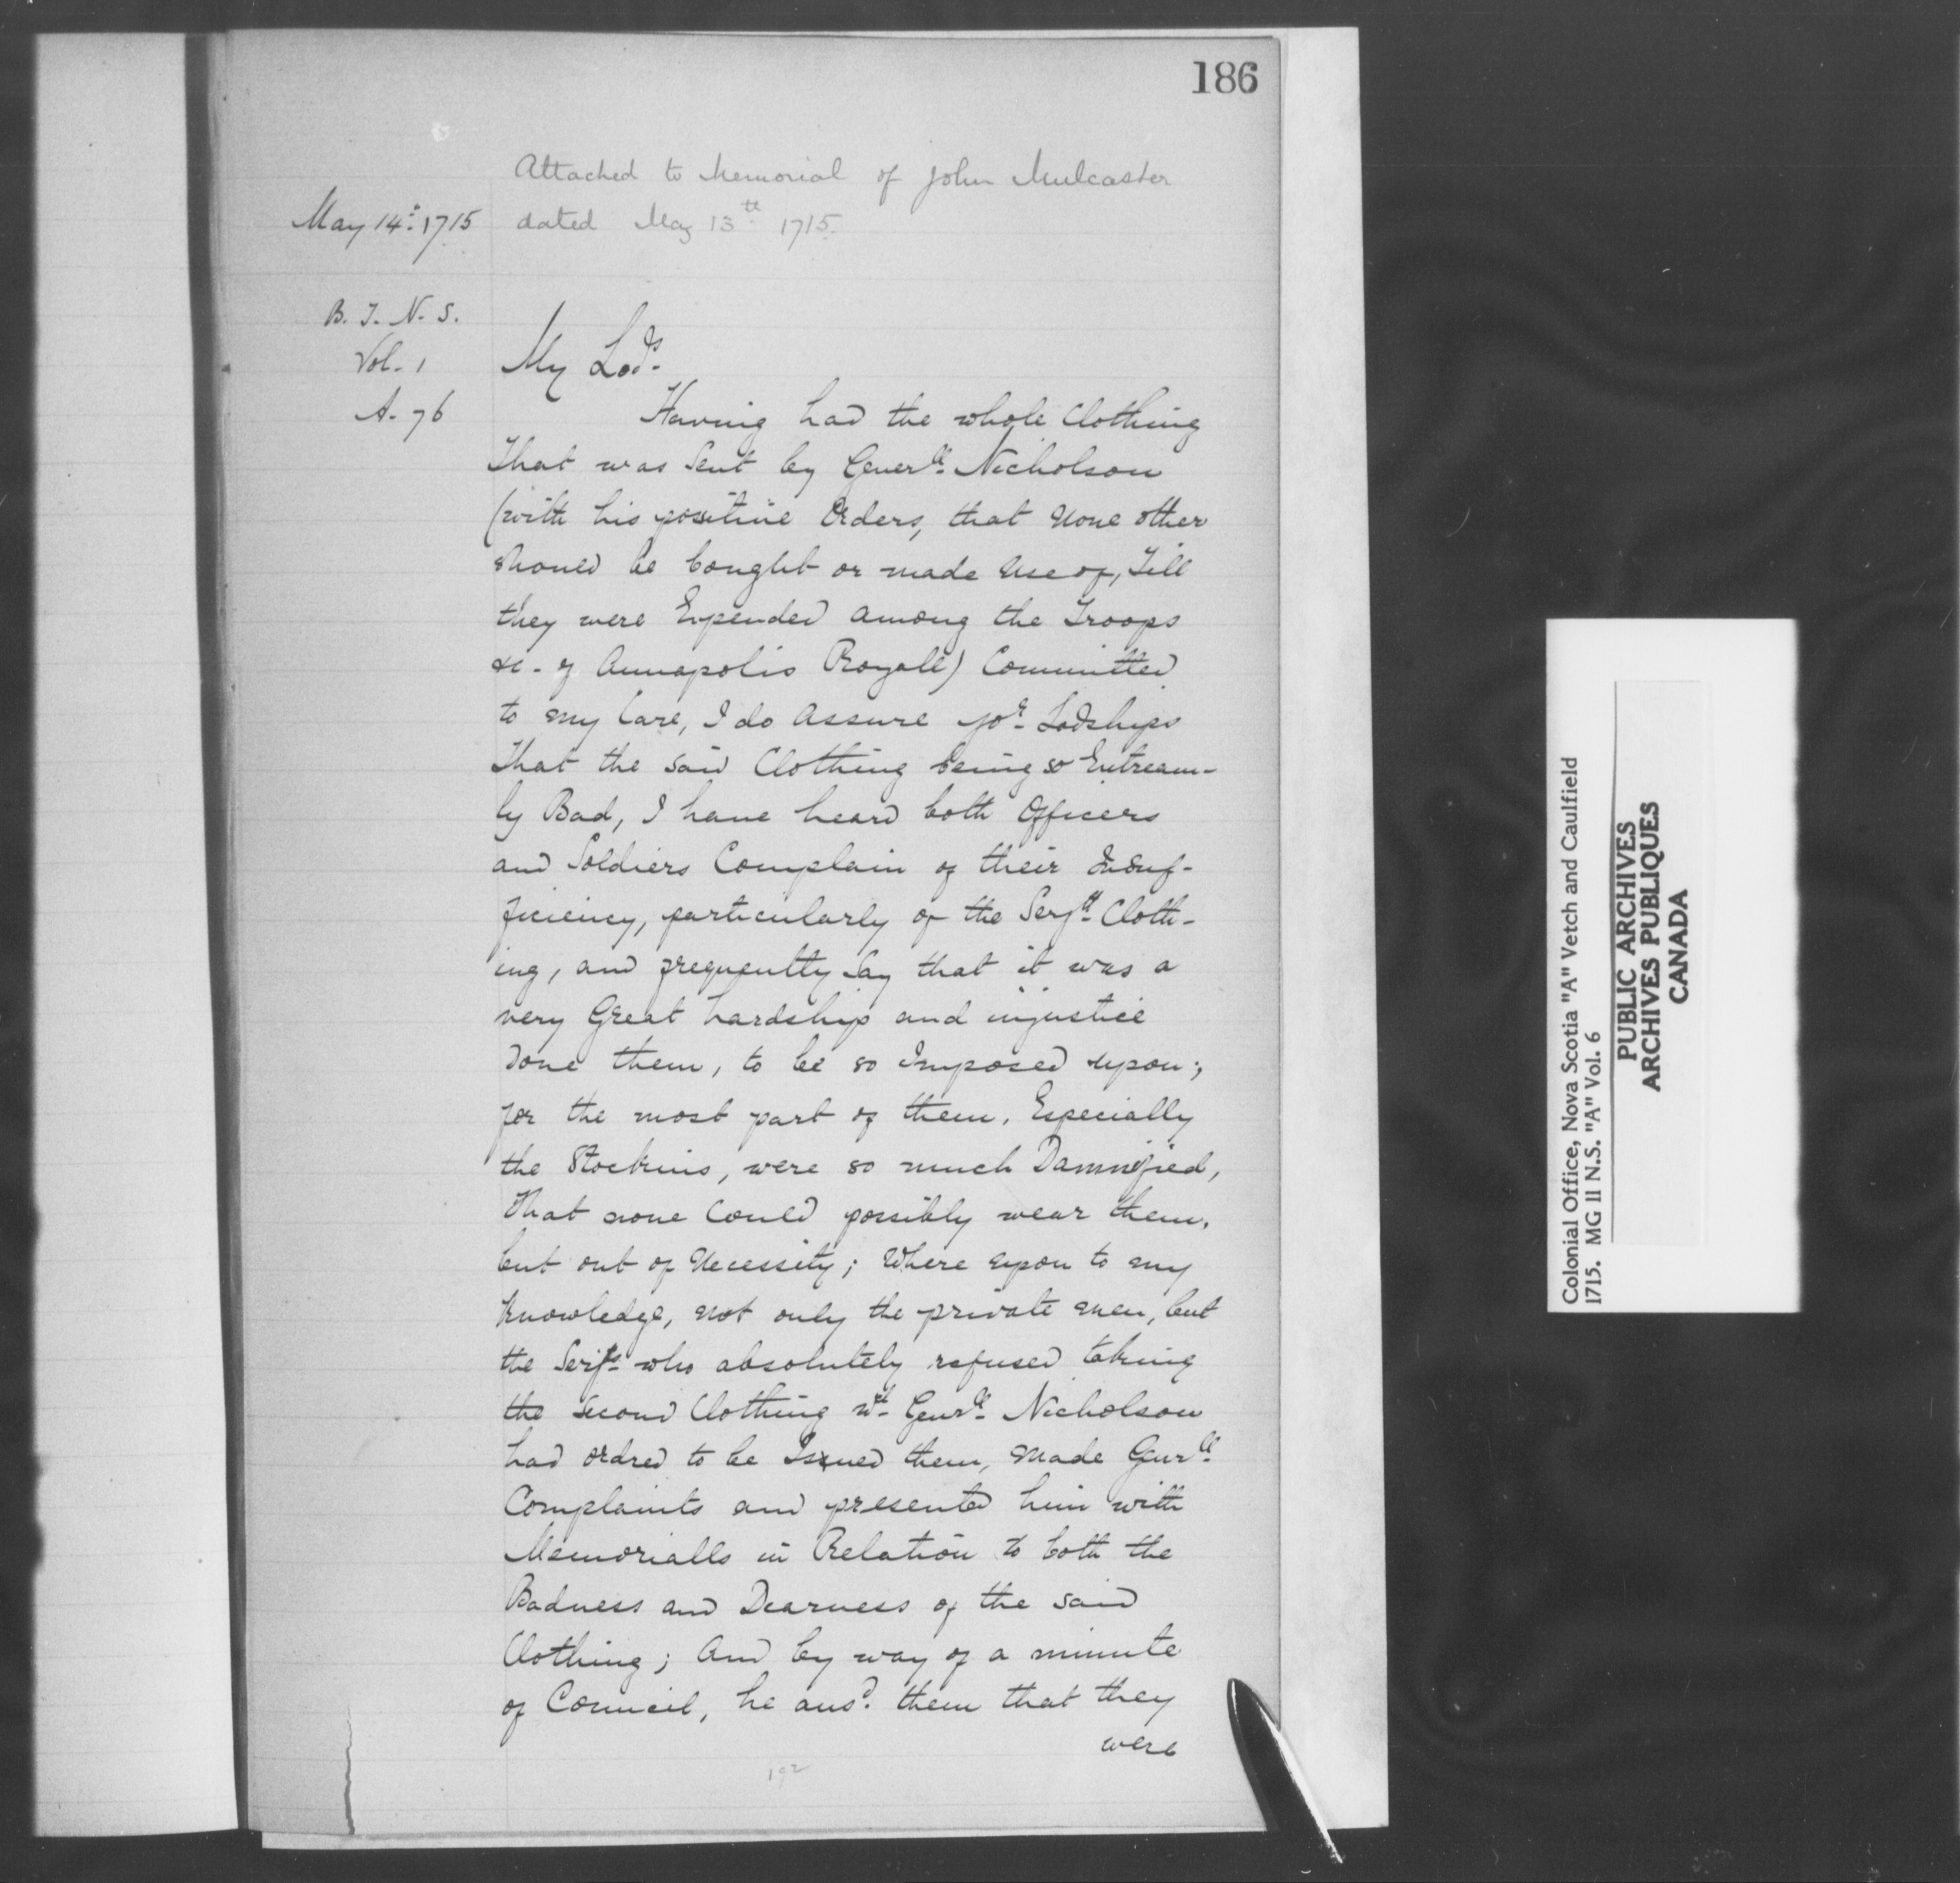 186
Attached to Memorial of John Mulcaster
dated May 13th 1715.
May 14th 1715
B. T. N. S.
Vol. 1
A. 76
My Lods.
Having had the whole Clothing
That was Sent by Generll. Nicholson
(with his positive Orders, that None other
Should be bought or made Use of, Till
they were Expended among the Troops
&c. of Annapolis Royall) Committed
to my Care, I do assure yor. Lodships
That the said Clothing being so Extream-
ly Bad, I have heard both Officers
and Soldiers Complain of their Insuf-
ficiency, particularly of the Serjts. Cloth-
ing, and frequently Say that it was a
very Great hardship and injustice
done them, to be so Imposed upon;
for the most part of them, Especially
the Stockins, were so much Damnified,
That none Could possibly wear them,
but out of Necessity; Where upon to my
Knowledge, not only the private men, but
the Serjts. who absolutely refused taking
the second Clothing wch. Genrll. Nicholson
had ordred to be Issued them, made Genrll.
Complaints and presented him with
Memorialls in Relation to both the
Badness and Dearness of the said
Clothing; And by way of a minute
of Council, he ansd. them that they
were
192
Colonial Office, Nova Scotia "A" Vetch and Caulfield
1715. MG 11 N.S. "A" Vol. 6
PUBLIC ARCHIVES
ARCHIVES PUBLIQUES
CANADA